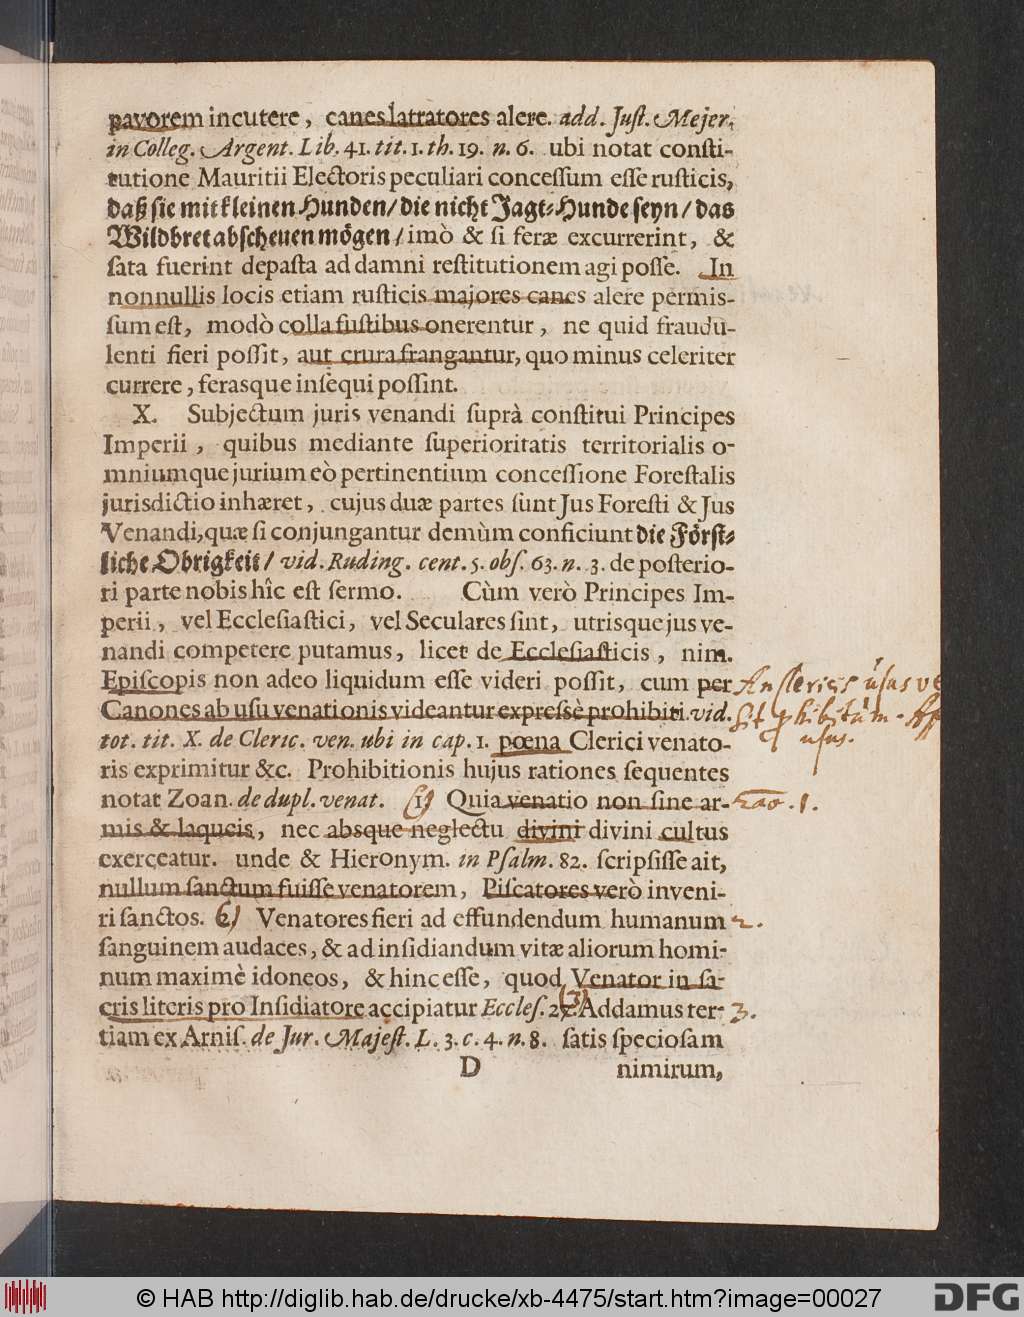 pavorem incutere, canes latratores alere. add. Juſt. Mejer.
in Colleg. Argent. Lib. 41. tit. 1. th. 19. n. 6. ubi notat conſti-
tutione Mauritii Electoris peculiari conceſſum eſſe ruſticis,
daß ſie mit kleinen Hunden/ die nicht Jagt-Hunde ſeyn/ das
Wildbret abſcheuen mögen/ imò & ſi feræ excurrerint, &
ſata fuerint depaſta ad damni reſtitutionem agi poſſe. In
nonnullis locis etiam ruſticis majores canes alere permiſ-
ſum eſt, modò colla fuſtibus onerentur, ne quid fraudu-
lenti fieri poſſit, aut crura frangantur, quo minus celeriter
currere, ferasque inſequi poſſint.
X. Subjectum juris venandi ſuprà conſtitui Principes
Imperii, quibus mediante ſuperioritatis territorialis o-
mniumque jurium eò pertinentium conceſſione Foreſtalis
jurisdictio inhæret, cujus duæ partes ſunt Jus Foreſti & Jus
Venandi, quæ ſi conjungantur demùm conficiunt die Förſt-
liche Obrigkeit/ vid. Ruding. cent. 5. obſ. 63. n. 3. de poſterio-
ri parte nobis hîc eſt ſermo. Cùm verò Principes Im-
perii, vel Eccleſiaſtici, vel Seculares ſint, utrisque jus ve-
nandi competere putamus, licet de Eccleſiaſticis, nim.
Epiſcopis non adeo liquidum eſſe videri poſſit, cum per
Canones ab uſu venationis videantur expreſsè prohibiti. vid.
tot. tit. X. de Cleric. ven. ubi in cap. 1. pœna Clerici venato-
ris exprimitur &c. Prohibitionis hujus rationes ſequentes
notat Zoan. de dupl. venat. (1) Quia venatio non ſine ar-
mis & laqueis, nec absque neglectu divini divini cultus
exerceatur. unde & Hieronym. in Pſalm. 82. ſcripſiſſe ait,
nullum ſanctum fuiſſe venatorem, Piſcatores verò inveni-
ri ſanctos. 2) Venatores fieri ad effundendum humanum
ſanguinem audaces, & ad inſidiandum vitæ aliorum homi-
num maximè idoneos, & hinc eſſe, quod Venator in ſa-
cris literis pro Inſidiatore accipiatur Eccleſ. 2. (3) Addamus ter-
tiam ex Arniſ. de Jur. Majeſt. L. 3. c. 4. n. 8. ſatis ſpecioſam
D nimirum,
An clericis uſus
uſus.
Rao. 1.
2.
3.
© HAB http://diglib.hab.de/drucke/xb-4475/start.htm?image=00027
DFG